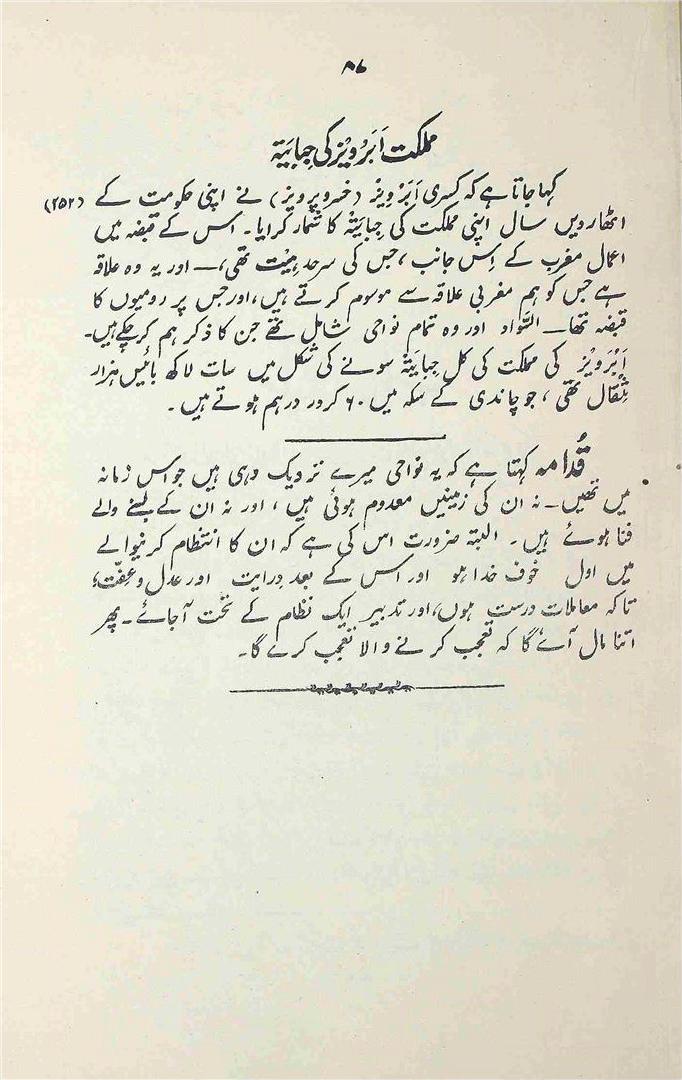 ۸۷
مملکت اَبَرْوِیْز کی جِبَایَۃ
کہا جاتا ہے کہ کسریٰ اَبَرْوِیْز (خسرو پرویز) نے اپنی حکومت کے (۲۵۲)
اٹھارویں سال اپنی مملکت کی جِبایَۃ کا شمار کرایا۔ اس کے قبضہ میں
اعمال مغرب کے اِس جانب، جس کی سرحد ہِیْت تھی، — اور یہ وہ علاقہ
ہے جس کو ہم مغربی علاقہ سے موسوم کرتے ہیں، اور جس پر رومیوں کا
قبضہ تھا — السَّواد اور وہ تمام نواحی شامل تھے جن کا ذکر ہم کر چکے ہیں۔
اَبَرْوِیْز کی مملکت کی کل جِبایَۃ سونے کی شکل میں سات لاکھ بائیس ہزار
مِثقال تھی، جو چاندی کے سکہ میں ۶۰ کرور درہم ہوتے ہیں۔
قُدامہ کہتا ہے کہ یہ نواحی میرے نزدیک وہی ہیں جو اس زمانہ
میں تھیں۔ نہ ان کی زمینیں معدوم ہوئی ہیں، اور نہ ان کے بسنے والے
فنا ہوئے ہیں۔ البتہ ضرورت اس کی ہے کہ ان کا انتظام کرنیوالے
میں اول خوف خدا ہو اور اس کے بعد درایت اور عدل و عِفّت،
تاکہ معاملات درست ہوں، اور تدبیر ایک نظام کے تحت آجائے۔ پھر
اتنا مال آئے گا کہ تعجب کرنے والا تعجب کرے گا۔